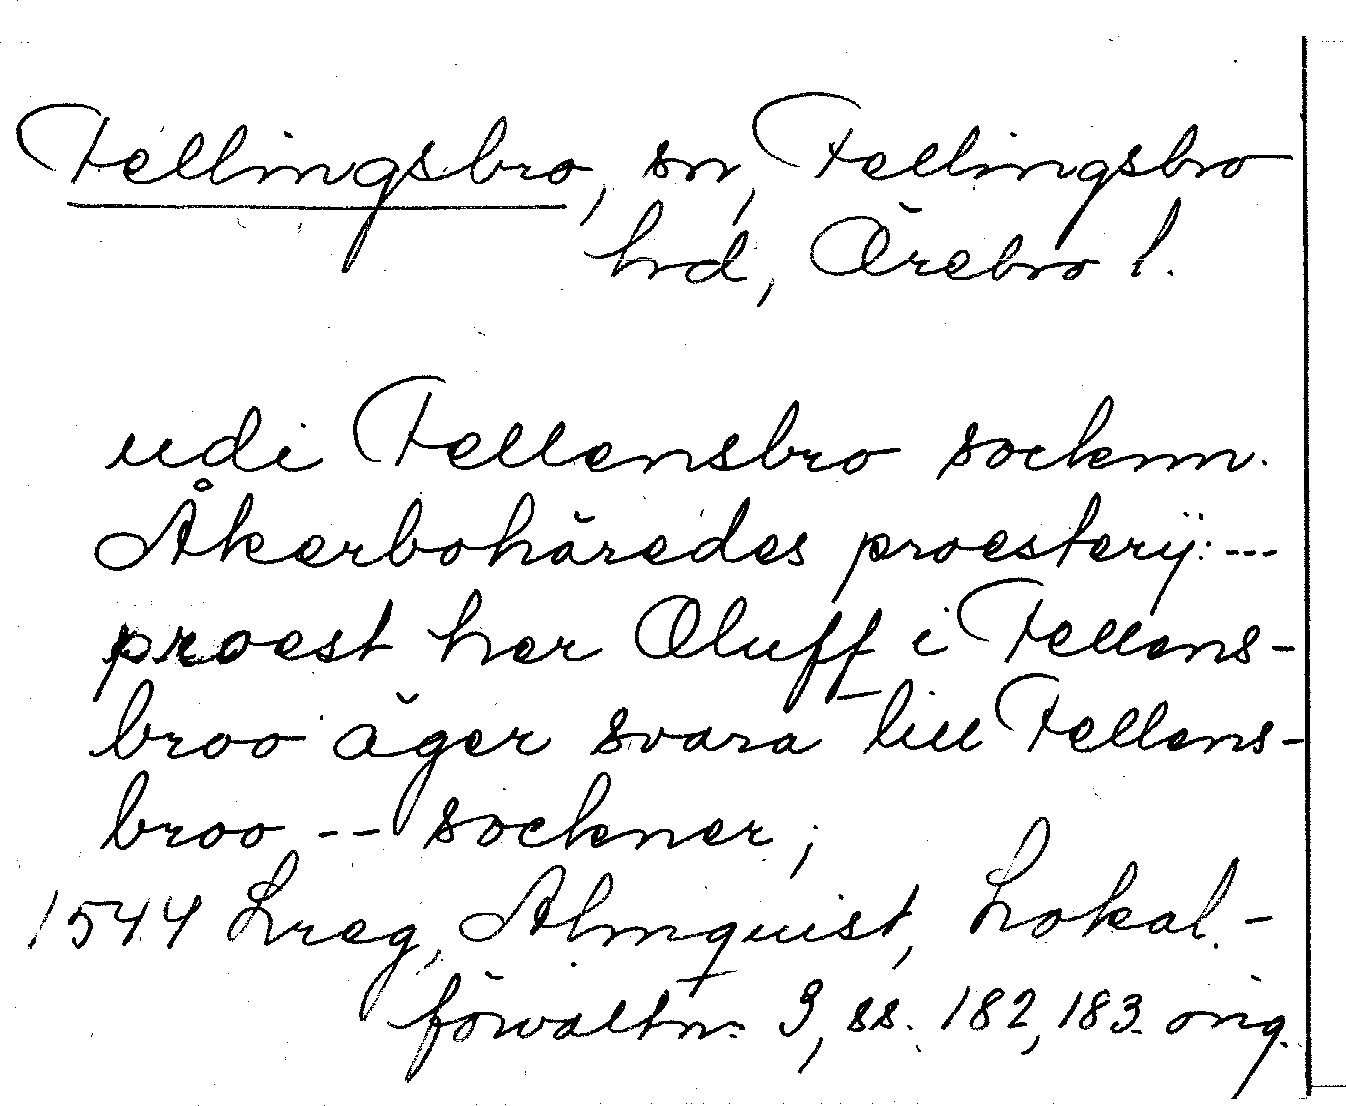 Fellingsbro, sn, Fellingsbro
hrd, Örebro l.
udi Fellensbro socknn.
Åkerbohäredes proesterij: ---
proest her Oluff i Fellens-
broo äger svara till Fellens-
broo -- sockner;
1544 Lreg, Almquist, Lokal-
förvaltn: 3, ss. 182, 183. orig.